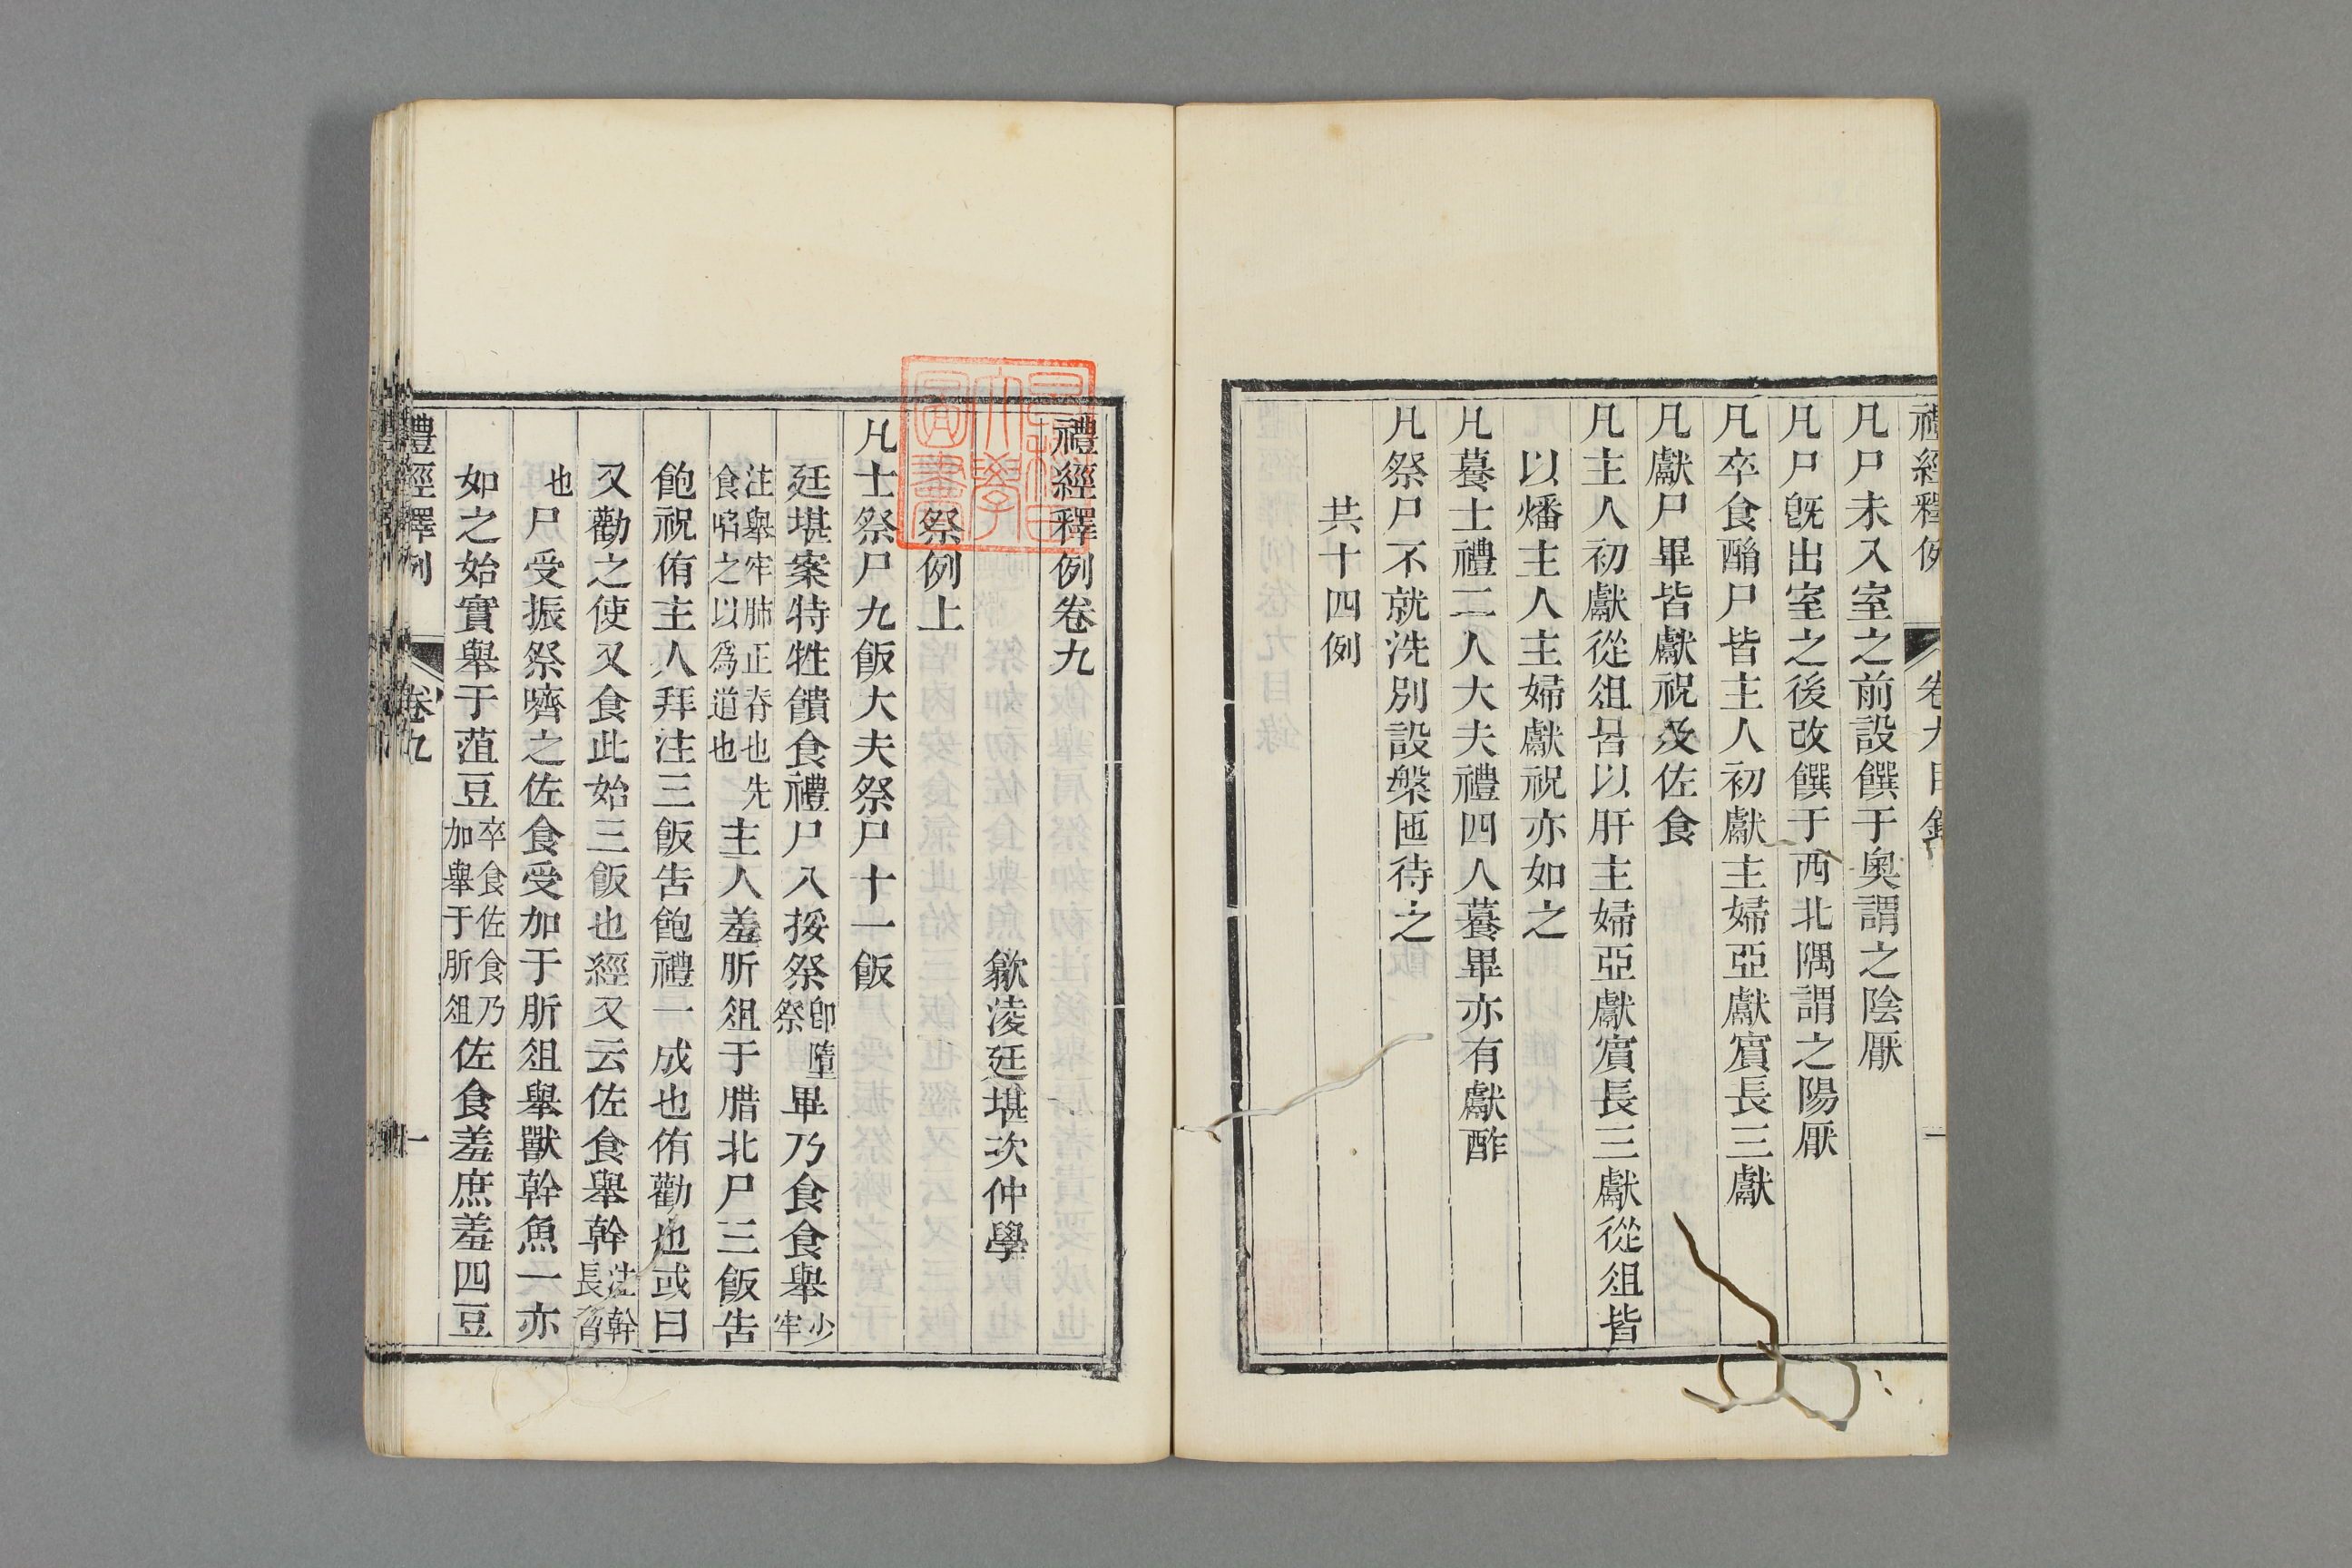 禮經釋例 卷九目錄 一
凡尸未入室之前設饌于奧謂之陰厭
凡尸旣出室之後改饌于西北隅謂之陽厭
凡卒食酳尸皆主人初獻主婦亞獻賓長三獻
凡獻尸畢皆獻祝及佐食
凡主人初獻從俎皆以肝主婦亞獻賓長三獻從俎皆
以燔主人主婦獻祝亦如之
凡餕士禮二人大夫禮四人餕畢亦有獻酢
凡祭尸不就洗別設槃匜待之
共十四例
禮經釋例卷九
歙淩廷堪次仲學
祭例上
凡士祭尸九飯大夫祭尸十一飯
廷堪案特牲饋食禮尸入挼祭卽墮祭畢乃食食舉少牢
注舉牢肺正脊也先食啗之以爲道也主人羞肵俎于腊北尸三飯告
飽祝侑主人拜注三飯告飽禮一成也侑勸也或曰
又勸之使又食此始三飯也經又云佐食舉幹注幹長脅
也尸受振祭嚌之佐食受加于肵俎舉獸幹魚一亦
如之始實舉于菹豆卒食佐食乃加舉于肵俎佐食羞庶羞四豆
禮經釋例 卷九 一